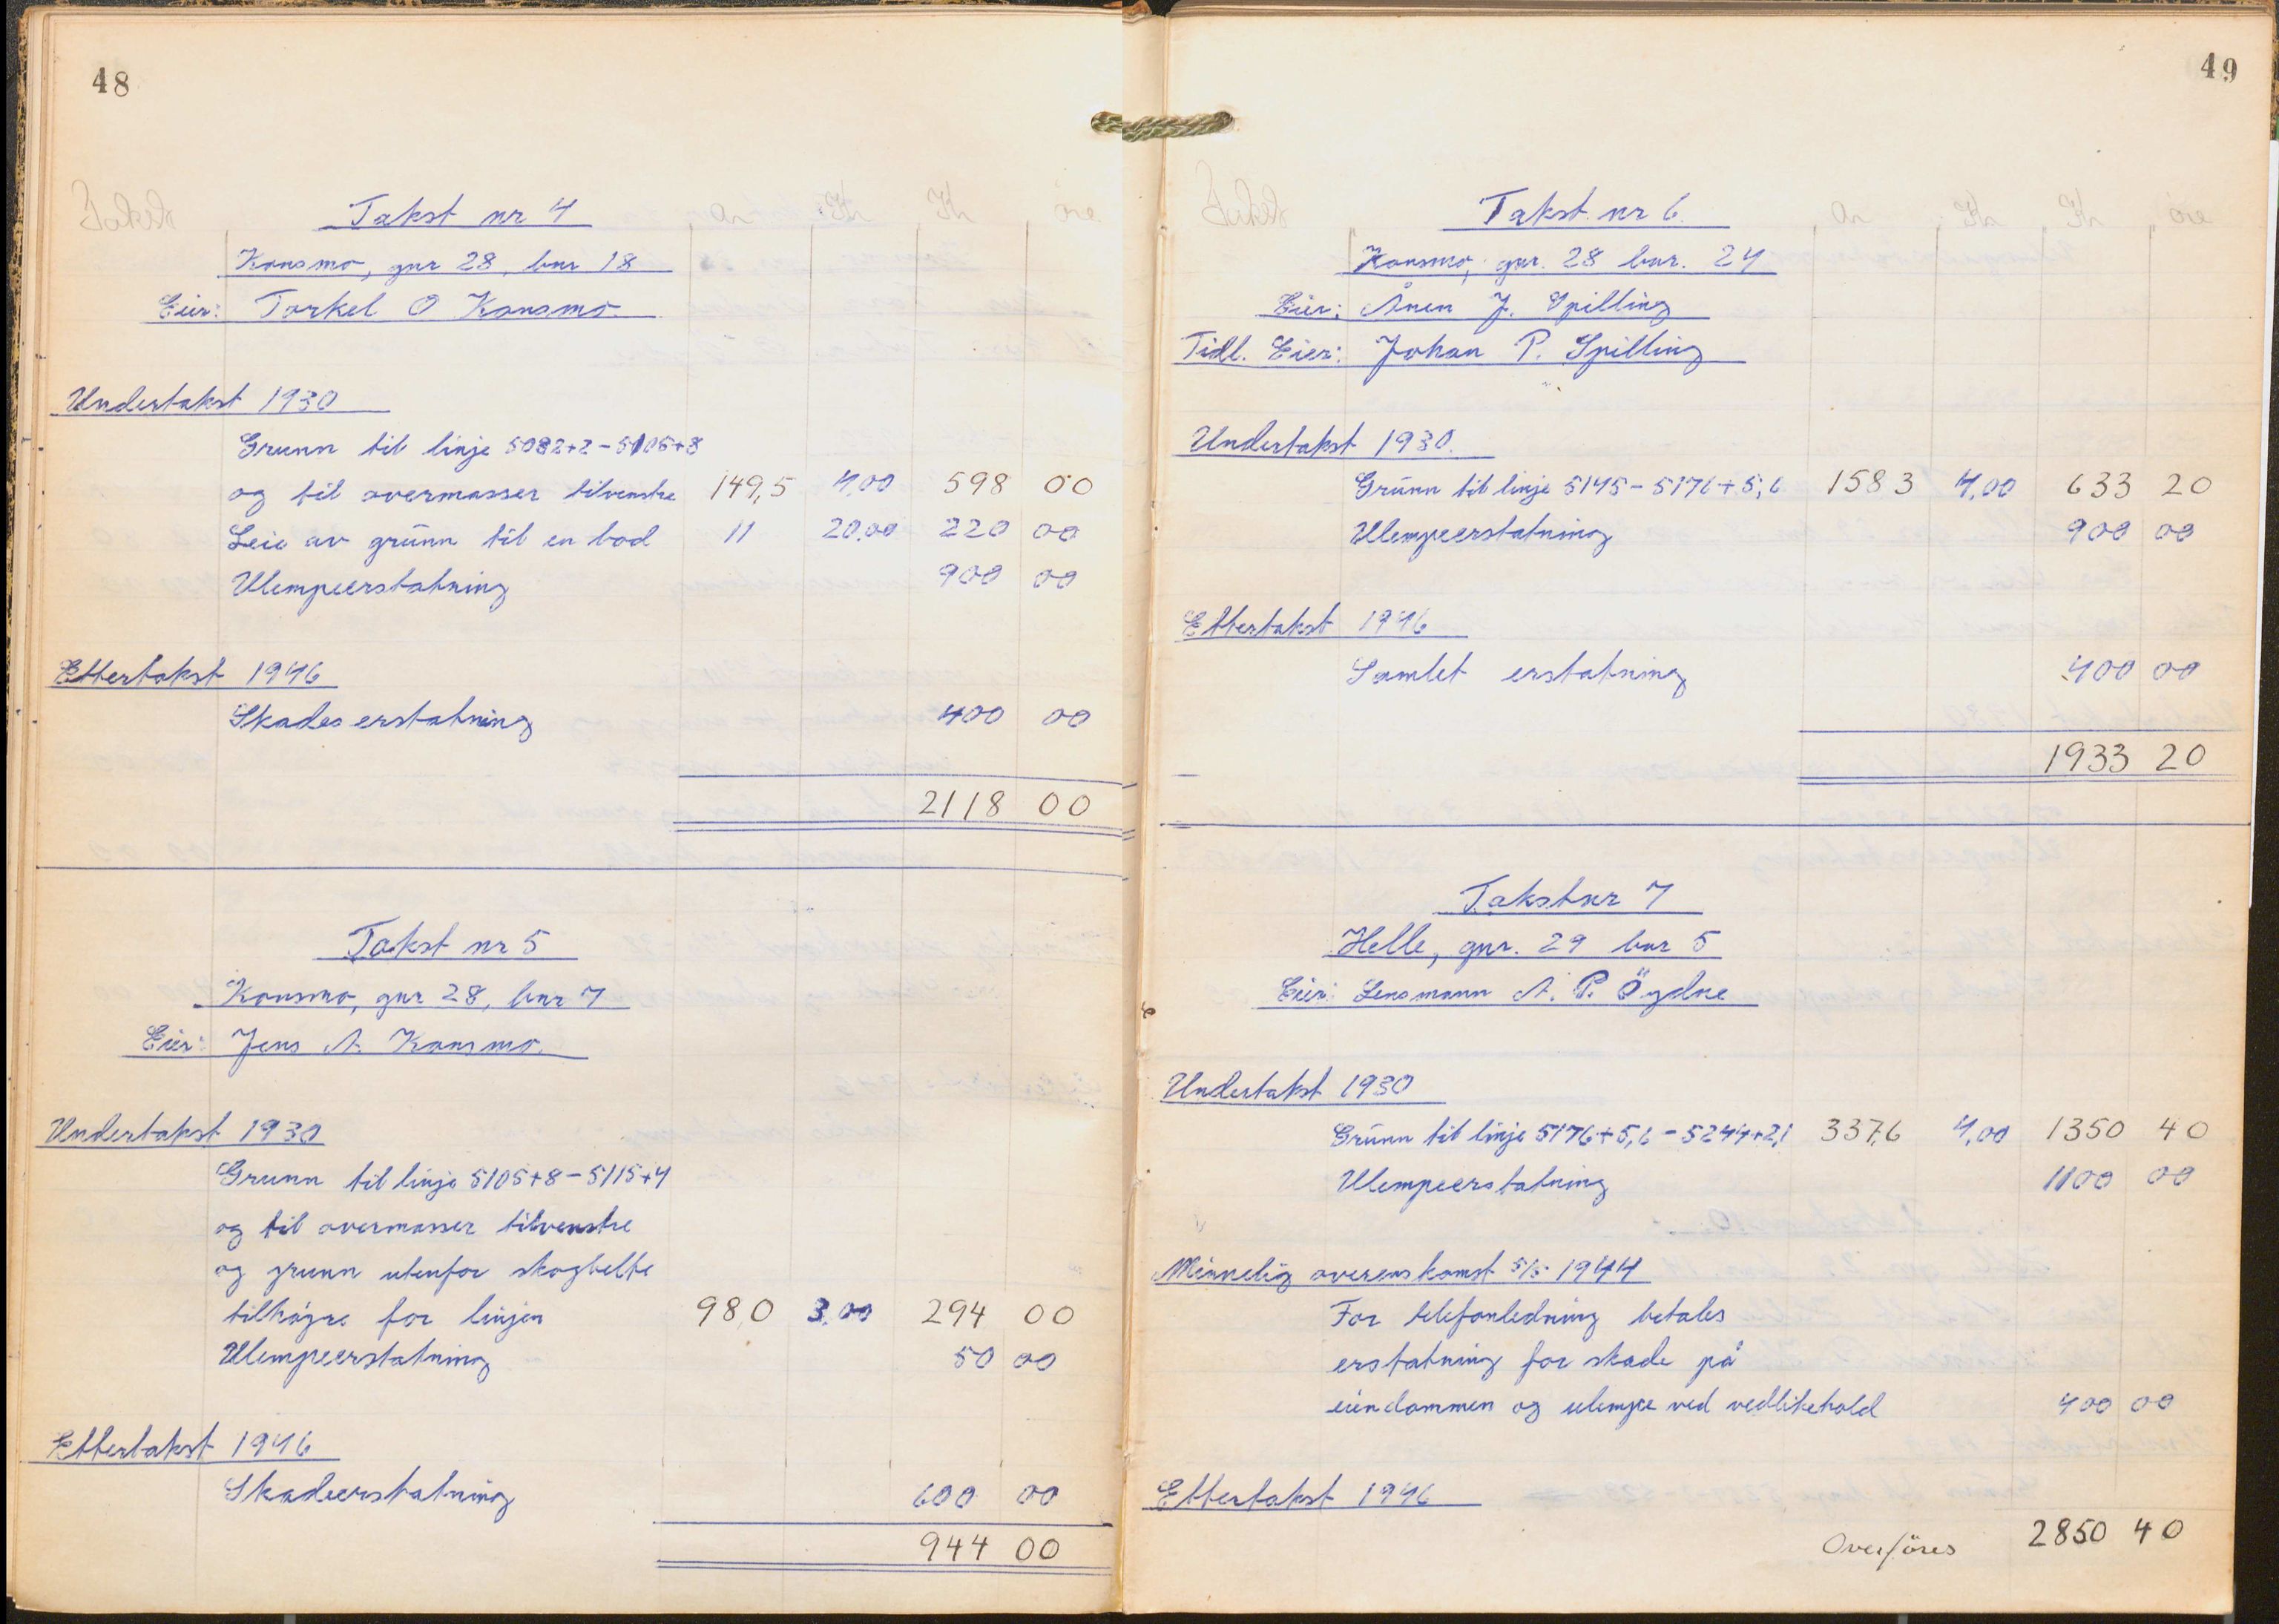 48
Takst nr 4
Takst ar Kr Kr øre
Konsmo, gnr 28, bnr 18
Eier: Torkel O Konsmo
Undertakst 1930
Grunn til linje 5082+2-5105+8
og til overmasser tilvenstre 149,5 4,00 598 00
Leie av grunn til en bod 11 20.00 220 00
Ulempeerstatning 900 00
Ettertakst 1946
Skadeserstatning 400 00
2118 00
Takst nr 5
Konsmo, gnr 28, bnr 7
Eier: Jens A. Konsmo.
Undertakst 1930
Grunn til linje 5105+8-5115+4
og til overmasser tilvenstre
og grunn utenfor skogbelte
tilhøgre for linjen 98,0 3.00 294 00
Ulempeerstatning 50 00
Ettertakst 1946
Skadeerstatning 600 00
944 00
49
Takst nr 6
Takst ar Kr Kr øre
Konsmo, gnr. 28 bnr. 24
Eier: Ånen J. Spilling
Tidl. Eier: Johan P. Spilling
Undertakst 1930.
Grunn til linje 5145-5176+5,6 158 3 4,00 633 20
Ulempeerstatning 900 00
Ettertakst 1946
Samlet erstatning 400 00
1933 20
Takst nr 7
Helle, gnr. 29 bnr 5
Eier: Lensmann A. P. Öydne
Undertakst 1930
Grunn til linje 5176+5,6-5244+2,1 337,6 4,00 1350 40
Ulempeerstatning 1100 00
Minnelig overenskomst 5/5 1944
For telefonledning betales
erstatning for skade på
eiendommen og ulempe ved vedlikehold 400 00
Ettertakst 1946
Overföres 2850 40